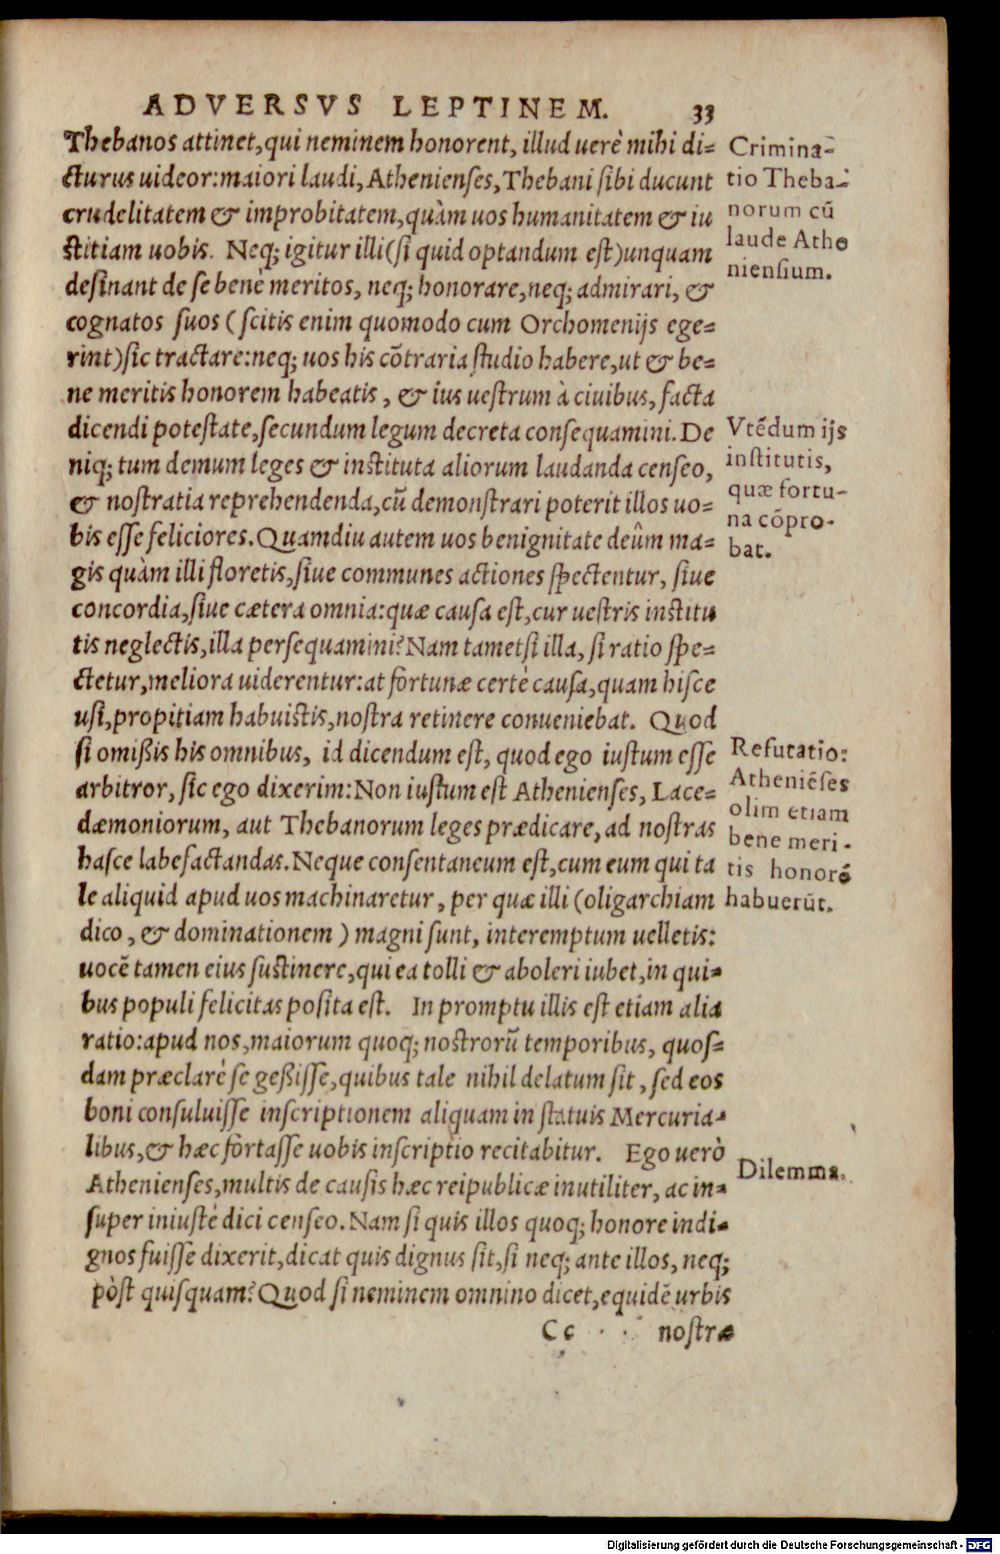 ADVERSVS LEPTINEM. 33
Thebanos attinet, qui neminem honorent, illud uerè mihi di=
cturus uideor: maiori laudi, Athenienses, Thebani sibi ducunt
crudelitatem & improbitatem, quàm uos humanitatem & iu
stitiam uobis. Neq; igitur illi (si quid optandum est) unquam
desinant de se bene meritos, neq; honorare, neq; admirari, &
cognatos suos (scitis enim quomodo cum Orchomenijs ege=
rint) sic tractare: neq; uos his cōtraria studio habere, ut & be=
ne meritis honorem habeatis, & ius uestrum à ciuibus, facta
dicendi potestate, secundum legum decreta consequamini. De
niq; tum demum leges & instituta aliorum laudanda censeo,
& nostratia reprehendenda, cū demonstrari poterit illos uo=
bis esse feliciores. Quamdiu autem uos benignitate deûm ma=
gis quàm illi floretis, siue communes actiones spectentur, siue
concordia, siue cætera omnia: quæ causa est, cur uestris institu
tis neglectis, illa persequamini? Nam tametsi illa, si ratio spe=
ctetur, meliora uiderentur: at fortunæ certè causa, quam hisce
usi, propitiam habuistis, nostra retinere conueniebat. Quod
si omißis his omnibus, id dicendum est, quod ego iustum esse
arbitror, sic ego dixerim: Non iustum est Athenienses, Lace=
dæmoniorum, aut Thebanorum leges prædicare, ad nostras
hasce labefactandas. Neque consentaneum est, cum eum qui ta
le aliquid apud uos machinaretur, per quæ illi (oligarchiam
dico, & dominationem) magni sunt, interemptum uelletis:
uocē tamen eius sustinere, qui ea tolli & aboleri iubet, in qui=
bus populi felicitas posita est. In promptu illis est etiam alia
ratio: apud nos, maiorum quoq; nostrorū temporibus, quos=
dam præclarè se geßisse, quibus tale nihil delatum sit, sed eos
boni consuluisse inscriptionem aliquam in statuis Mercuria=
libus, & hæc fortasse uobis inscriptio recitabitur. Ego uerò
Athenienses, multis de causis hæc reipublicæ inutiliter, ac in=
super iniustè dici censeo. Nam si quis illos quoq; honore indi=
gnos fuisse dixerit, dicat quis dignus sit, si neq; ante illos, neq;
pòst quisquam? Quod si neminem omnino dicet, equidē urbis
Cc nostræ
Crimina-
tio Theba-
norum cū
laude Athe
niensium.
Vtēdum ijs
institutis,
quæ fortu-
na cōpro-
bat.
Refutatio:
Atheniēses
olim etiam
bene meri-
tis honorē
habuerūt.
Dilemma.
Digitalisierung gefördert durch die Deutsche Forschungsgemeinschaft - DFG